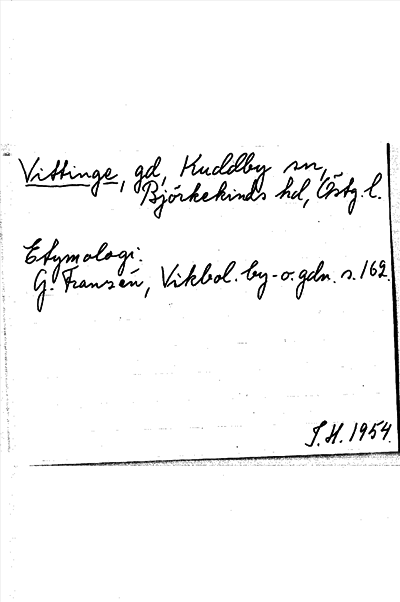 Vittinge, gd, Kuddby sn,
Björkekinds hd, Östg. l.
Etymologi:
G. Franzén, Vikbol. by- o. gdn. s. 162.
J. H. 1954.